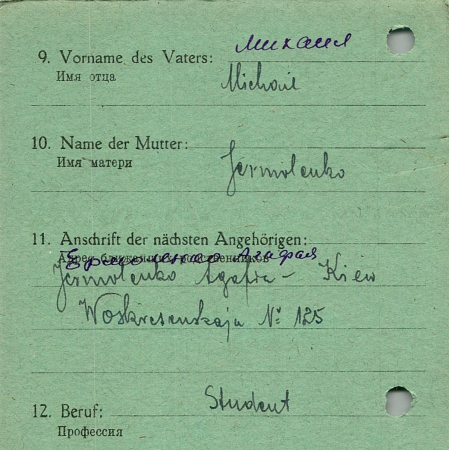 Михаил
9. Vorname des Vaters:
Имя отца
Michail
10. Name der Mutter:
Имя матери
Jermolenko
11. Anschrift der nächsten Angehörigen:
Адрес ближайших родственников
Ермоленко Агафая
Jermolenko Agafia - Kiew
Woskresenskaja № 125
12. Beruf:
Student
Профессия